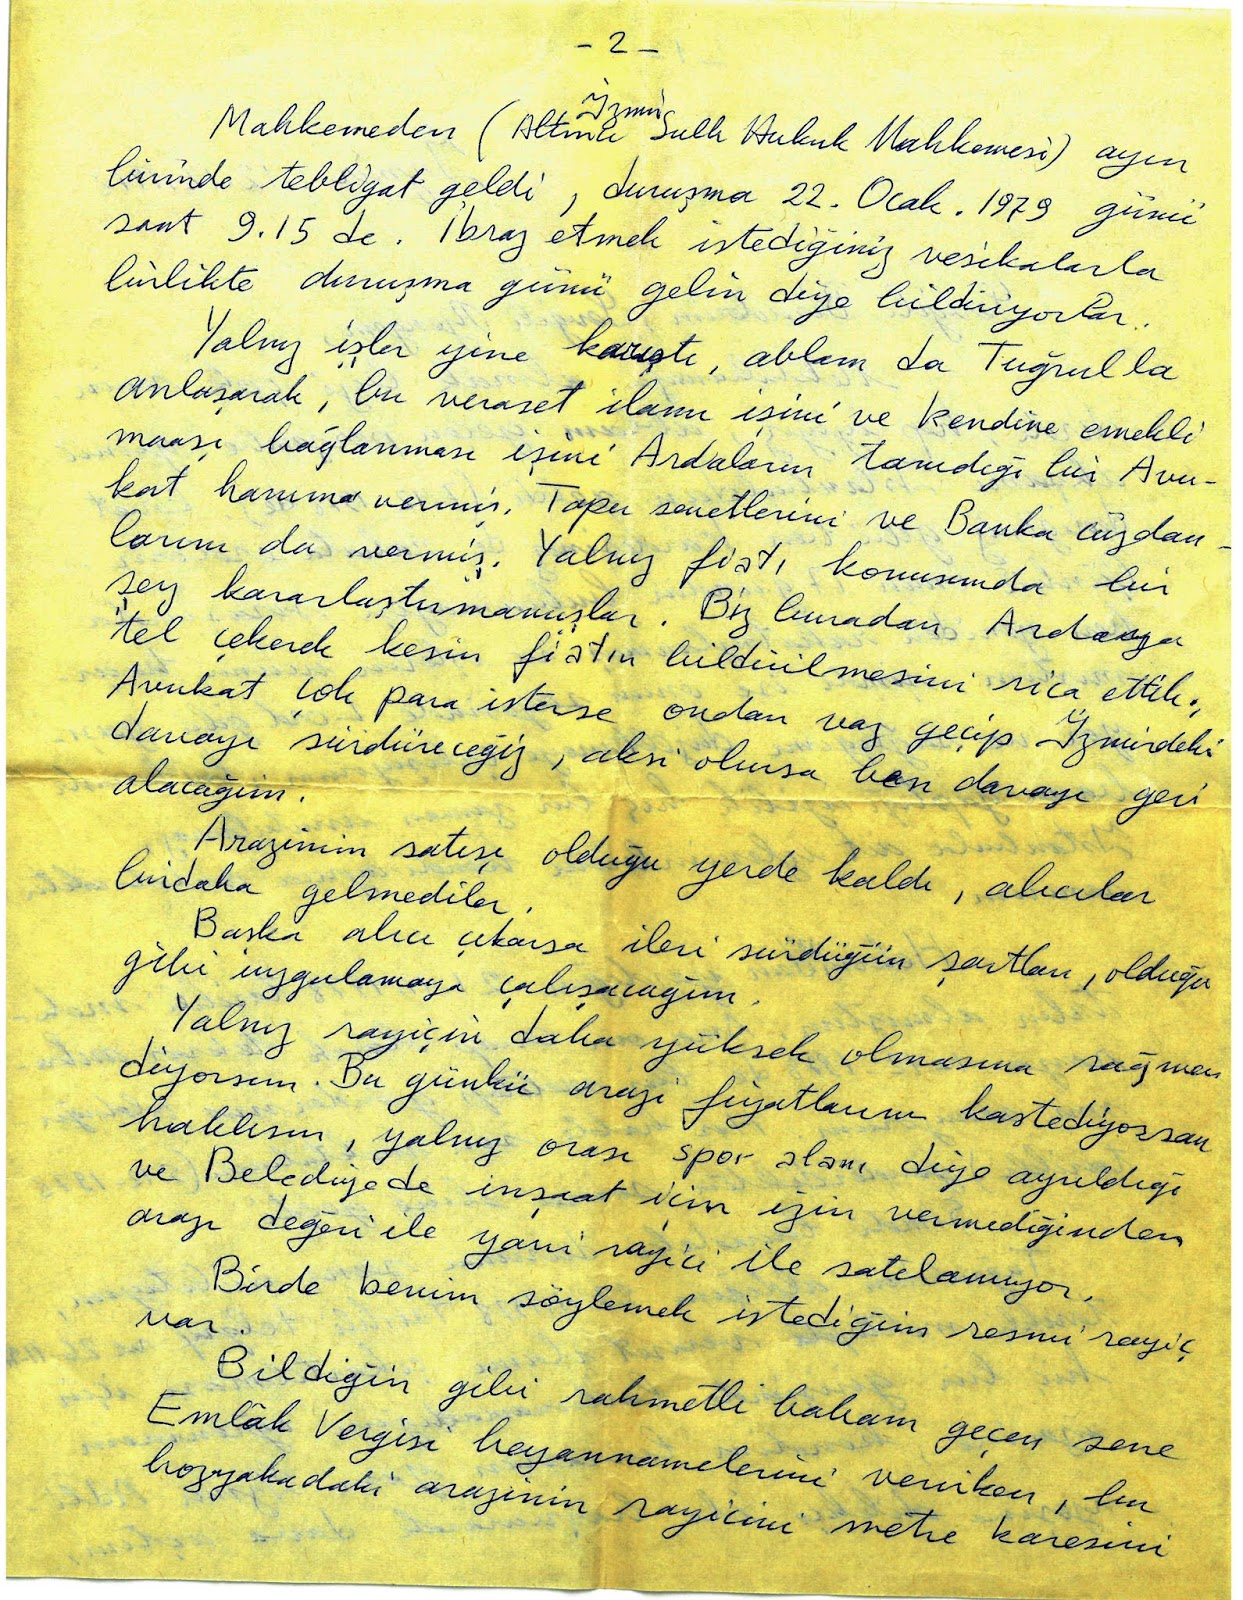 - 2 -
Mahkemeden (Altıncı İzmir Sulh Hukuk Mahkemesi) ayın
birinde tebligat geldi, duruşma 22. Ocak. 1979 günü
saat 9.15 de. İbraz etmek istediğiniz vesikalarla
birlikte duruşma günü gelin diye bildiriyorlar.
Yalnız işler yine karıştı, ablam da Tuğrulla
anlaşarak, bu veraset ilamı işini ve kendine emekli
maaşı bağlanması işini Ardaların tanıdığı bir Avu-
kat hanıma vermiş. Tapu senetlerini ve Banka cüzdan-
larını da vermiş. Yalnız fiatı konusunda bir
şey kararlaştırmamışlar. Biz buradan Ardaya
tel çekerek kesin fiatın bildirilmesini rica ettik.,
Avukat çok para isterse ondan vaz geçip İzmirdeki
davayı sürdüreceğiz, aksi olursa ben davayı geri
alacağım.
Arazinin satışı olduğu yerde kaldı, alıcılar
birdaha gelmediler.
Başka alıcı çıkarsa ileri sürdüğün şartları, olduğu
gibi uygulamaya çalışacağım.
Yalnız rayiçin daha yüksek olmasına rağmen
diyorsun. Bu günkü arazi fiyatlarını kastediyorsan
haklısın, yalnız orası spor alanı diye ayrıldığı
ve Belediyede inşaat için izin vermediğinden
arazi değeri ile yani rayici ile satılamıyor.
Birde benim söylemek istediğim resmi rayiç
var.
Bildiğin gibi rahmetli babam geçen sene
Emlâk Vergisi beyannamelerini verirken, bu
bozyakadaki arazinin rayicini metre karesini